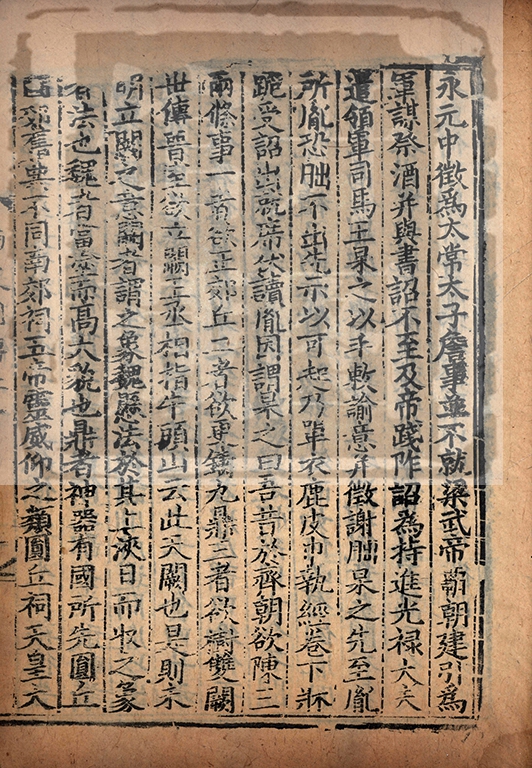 永元中徵爲太常太子詹事並不就梁武帝霸朝建引爲
軍謀祭酒并與書詔不至及帝踐阼詔為特進光禄大夫
遣領軍司馬王杲之以手敕諭意并徵謝朏杲之先至胤
所胤恐朏不出先示以可起乃單衣鹿皮巾執經卷下牀
跪受詔出就席伏讀胤因謂杲之曰吾昔於齊朝欲陳三
兩條事一者欲正郊丘二者欲更鑄九鼎三者欲樹雙闕
世傳晉室欲立闕王丞相指牛頭山云此天闕也是則未
明立闕之意闕者謂之象魏懸法於其上浹日而收之象
者法也魏者當塗而高大貌也鼎者神器有國所先圓丘
國郊舊典不同南郊祠五帝靈威仰之類圓丘祠天皇大